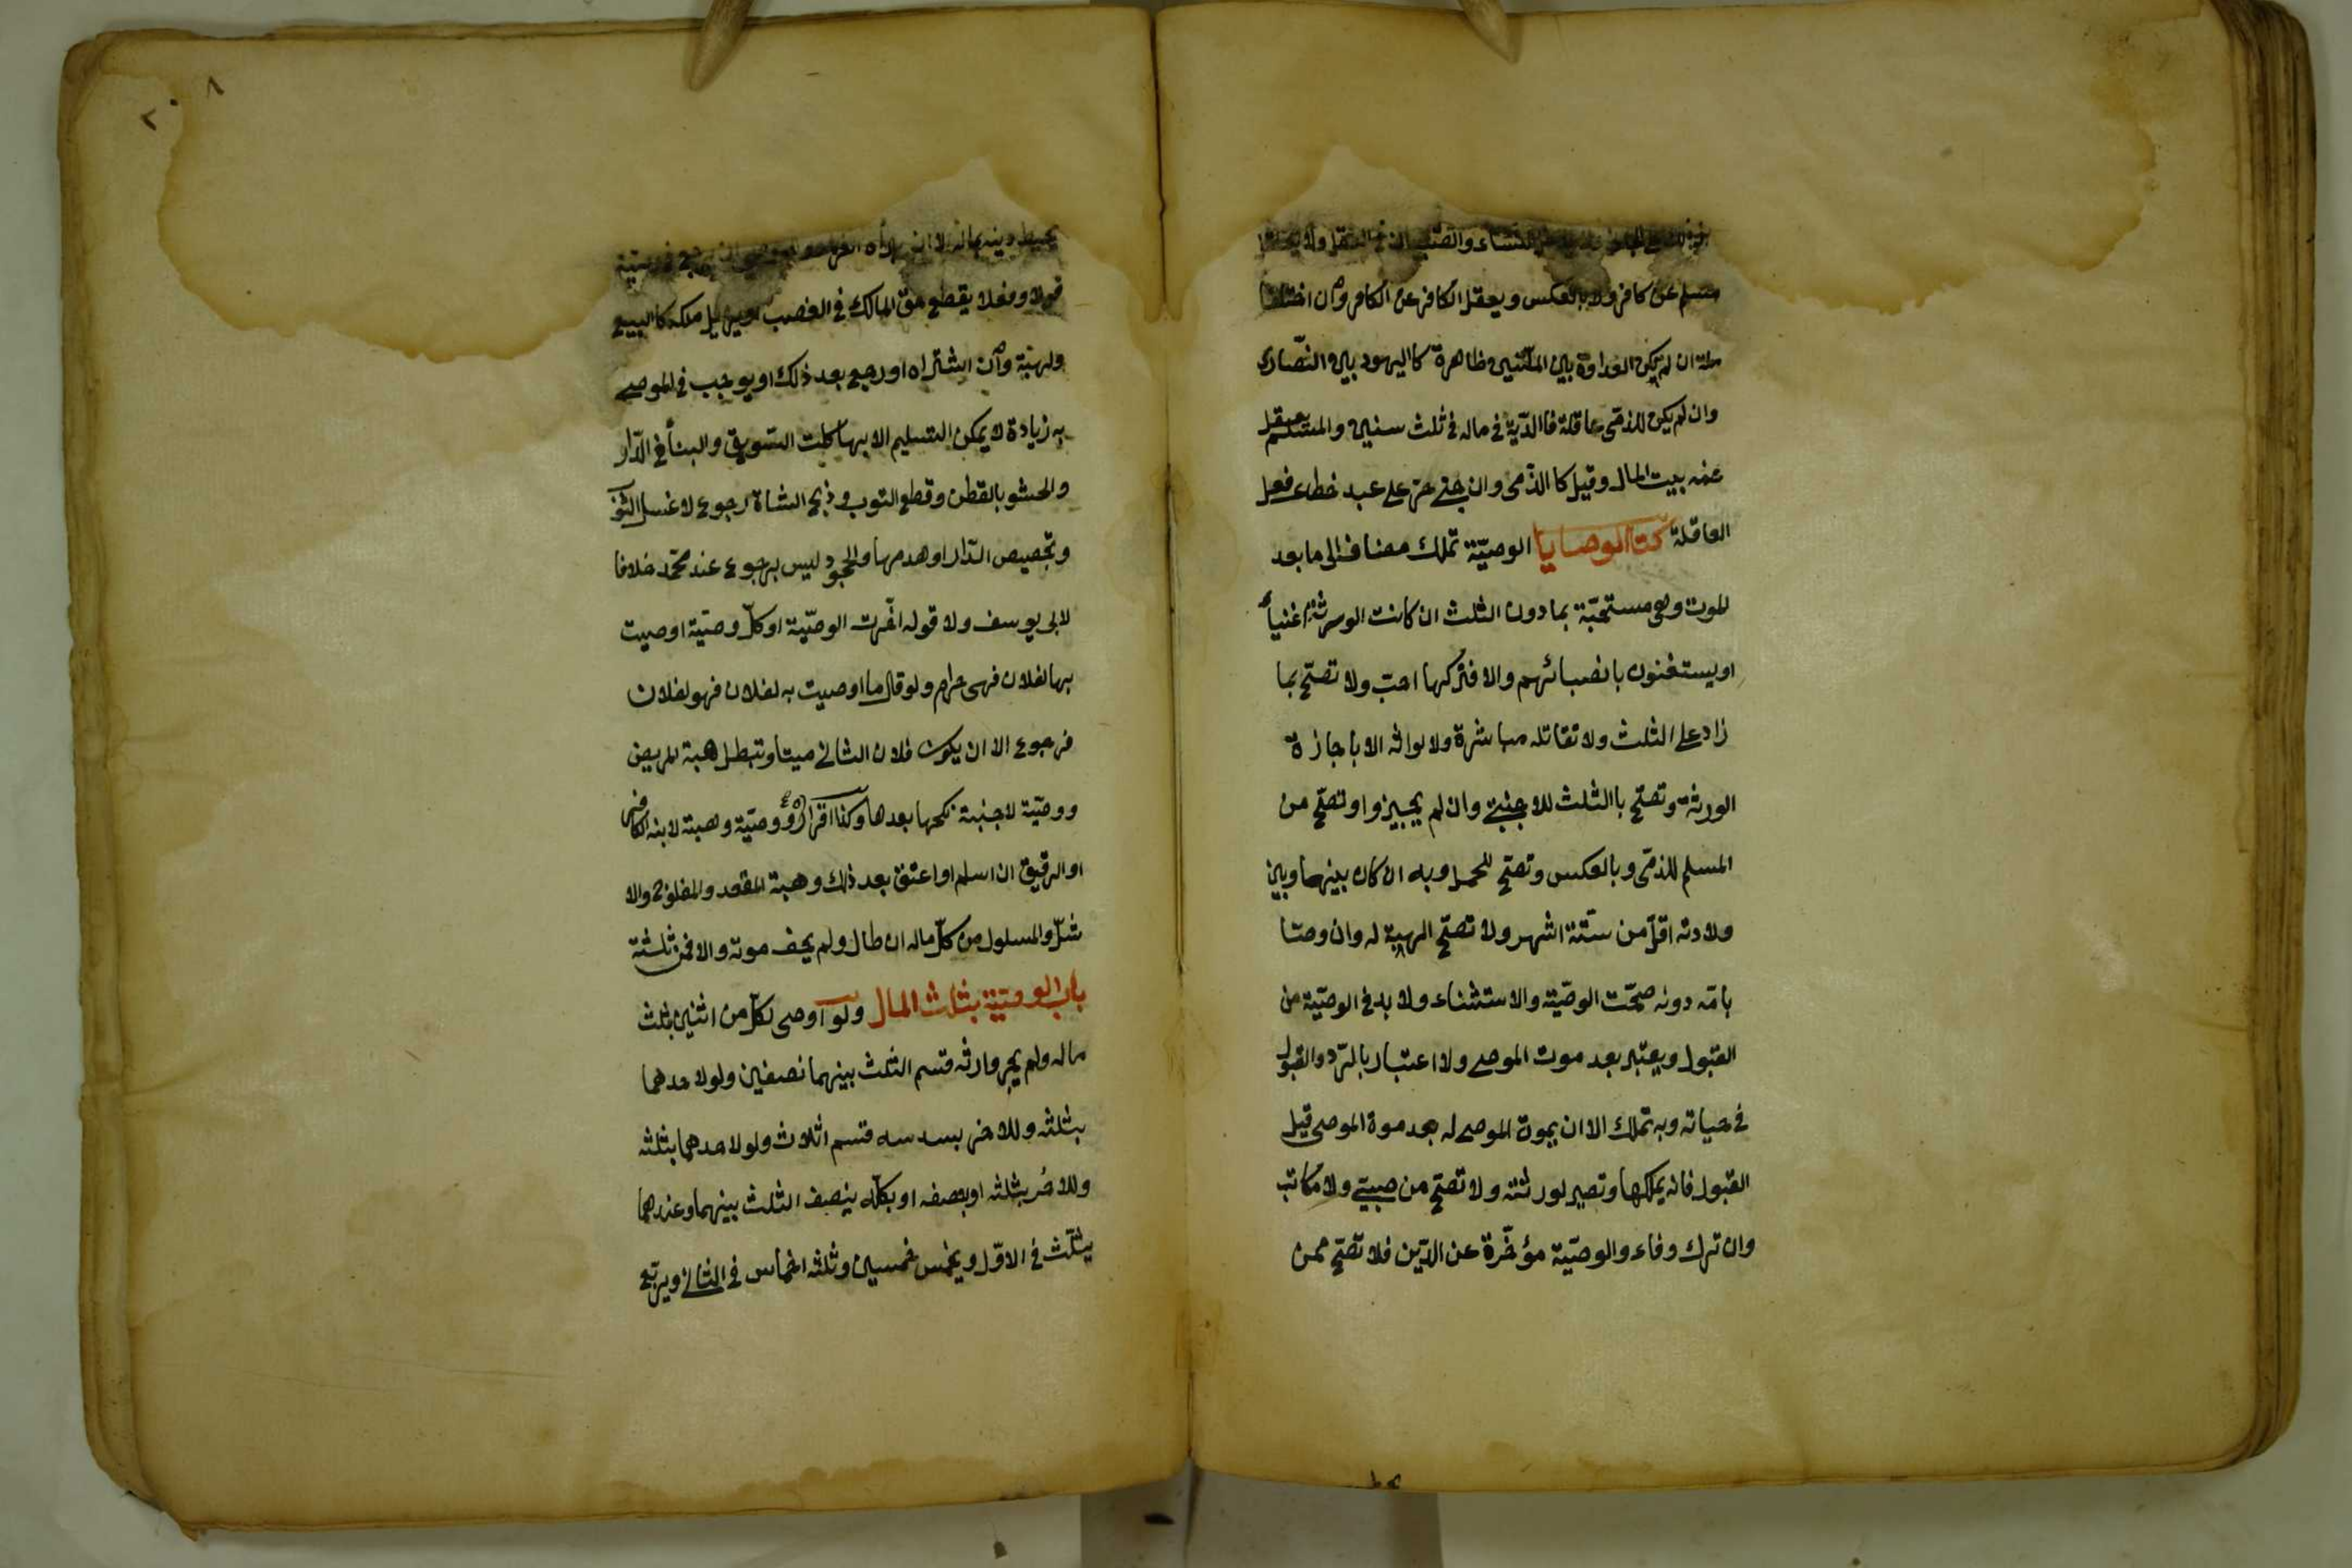 النساء والصبيان في العقل ولا يعقل
مسلم عن كافر ولا بالعكس ويعقل الكافر عن الكافر وان اختلفا
ملة ان لم يكن العداوة بين الملتين ظاهرة كا اليهود بين النصارى
وان لم يكن للذمى عاقلة فا الدّية في ماله في ثلث سنين والمسلم يعقل
عنه بيت المال وقيل كا الذمى وان جنى حرّ على عبد خطاء فعل
العاقلة كتا الوصايا الوصيّة تملك مضاف الى ما بعد
الموت وهى مستحبّة بما دون الثلث ان كانت الورثة اغنياء
او يستغنون بانصبائهم والا فتركها احبّ ولا تصحّ بما
زاد على الثلث ولا تقاتله مباشرة ولا لوارثه الا باجازة
الورثة وتصحّ با الثلث للاجنبى وان لم يجيزوا وتصحّ من
المسلم للذمّى وبالعكس وتصحّ للحمل وبه ان كان بينهما وبين
ولادته اقلّ من ستّة اشهر ولا تصحّ الهبة له وان وصّا
بامّه دونه صحّت الوصيّة والاستثناء ولا بد في الوصيّة من
القبول ويعتبر بعد موت الموصى ولا اعتبار بالردّ والقبول
في حياته وبه تملك الا ان يموت الموصى له بعد موة الموصى قبل
القبول فانه يملكها وتصير لورثته ولا تصحّ من صبىّ ولا مكاتب
وان ترك وفاء والوصيّة مؤخّرة عن الدّين فلا تصحّ ممن
يحيط
٢٠٨
يحيط دينه بماله الا ان يبرأه الغرماء وللموصى ان يرجع في وصيّته
قولا وفعلا يقطع حقّ المالك في الغصب او يزيل ملكه كا البيع
والهبة وان اشتراه او رجع بعد ذلك او يوجب في الموصى
به زيادة لا يمكن التسليم الا بها كلت السّويق والبناء في الدّار
والحشو بالقطن وقطع الثوب وذبح الشاة رجوع لا غسل الثو
وتجصيص الدّار او هدمها والجحود ليس برجوع عند محمّد خلافا
لابى يوسف ولا قوله اخّرت الوصيّة او كلّ وصيّة اوصيت
بها لفلان فهى حرام ولو قال ما اوصيت به لفلان فهو لفلان
فرجوع الا ان يكون فلان الثانى ميتا وتبطل هبة المريض
ووصيّة لاجنبية نكحها بعدها وكذا اقراره ووصيّة وهبة لابنه الكافر
او الرقيق ان اسلم او اعتق بعد ذلك وهبة المقعد والمفلوج والا
شلّ والمسلول من كلّ ماله ان طال ولم يخف موته والا فمن ثلثه
باب الوصيّة بثلث المال ولو اوصى لكلّ من اثنين بثلث
ماله ولم يجز وارثه قسم الثلث بينهما نصفين ولو لاحدهما
بثلثه وللاخر بسدسه قسم اثلاث ولو لاحدهما بثلثه
وللاخر بثلثه او بنصفه او بكلّه ينصف الثلث بينهما وعندهما
يثلّث في الاوّل ويخمس خمسين وثلثه اخماس في الثانى ويربّع